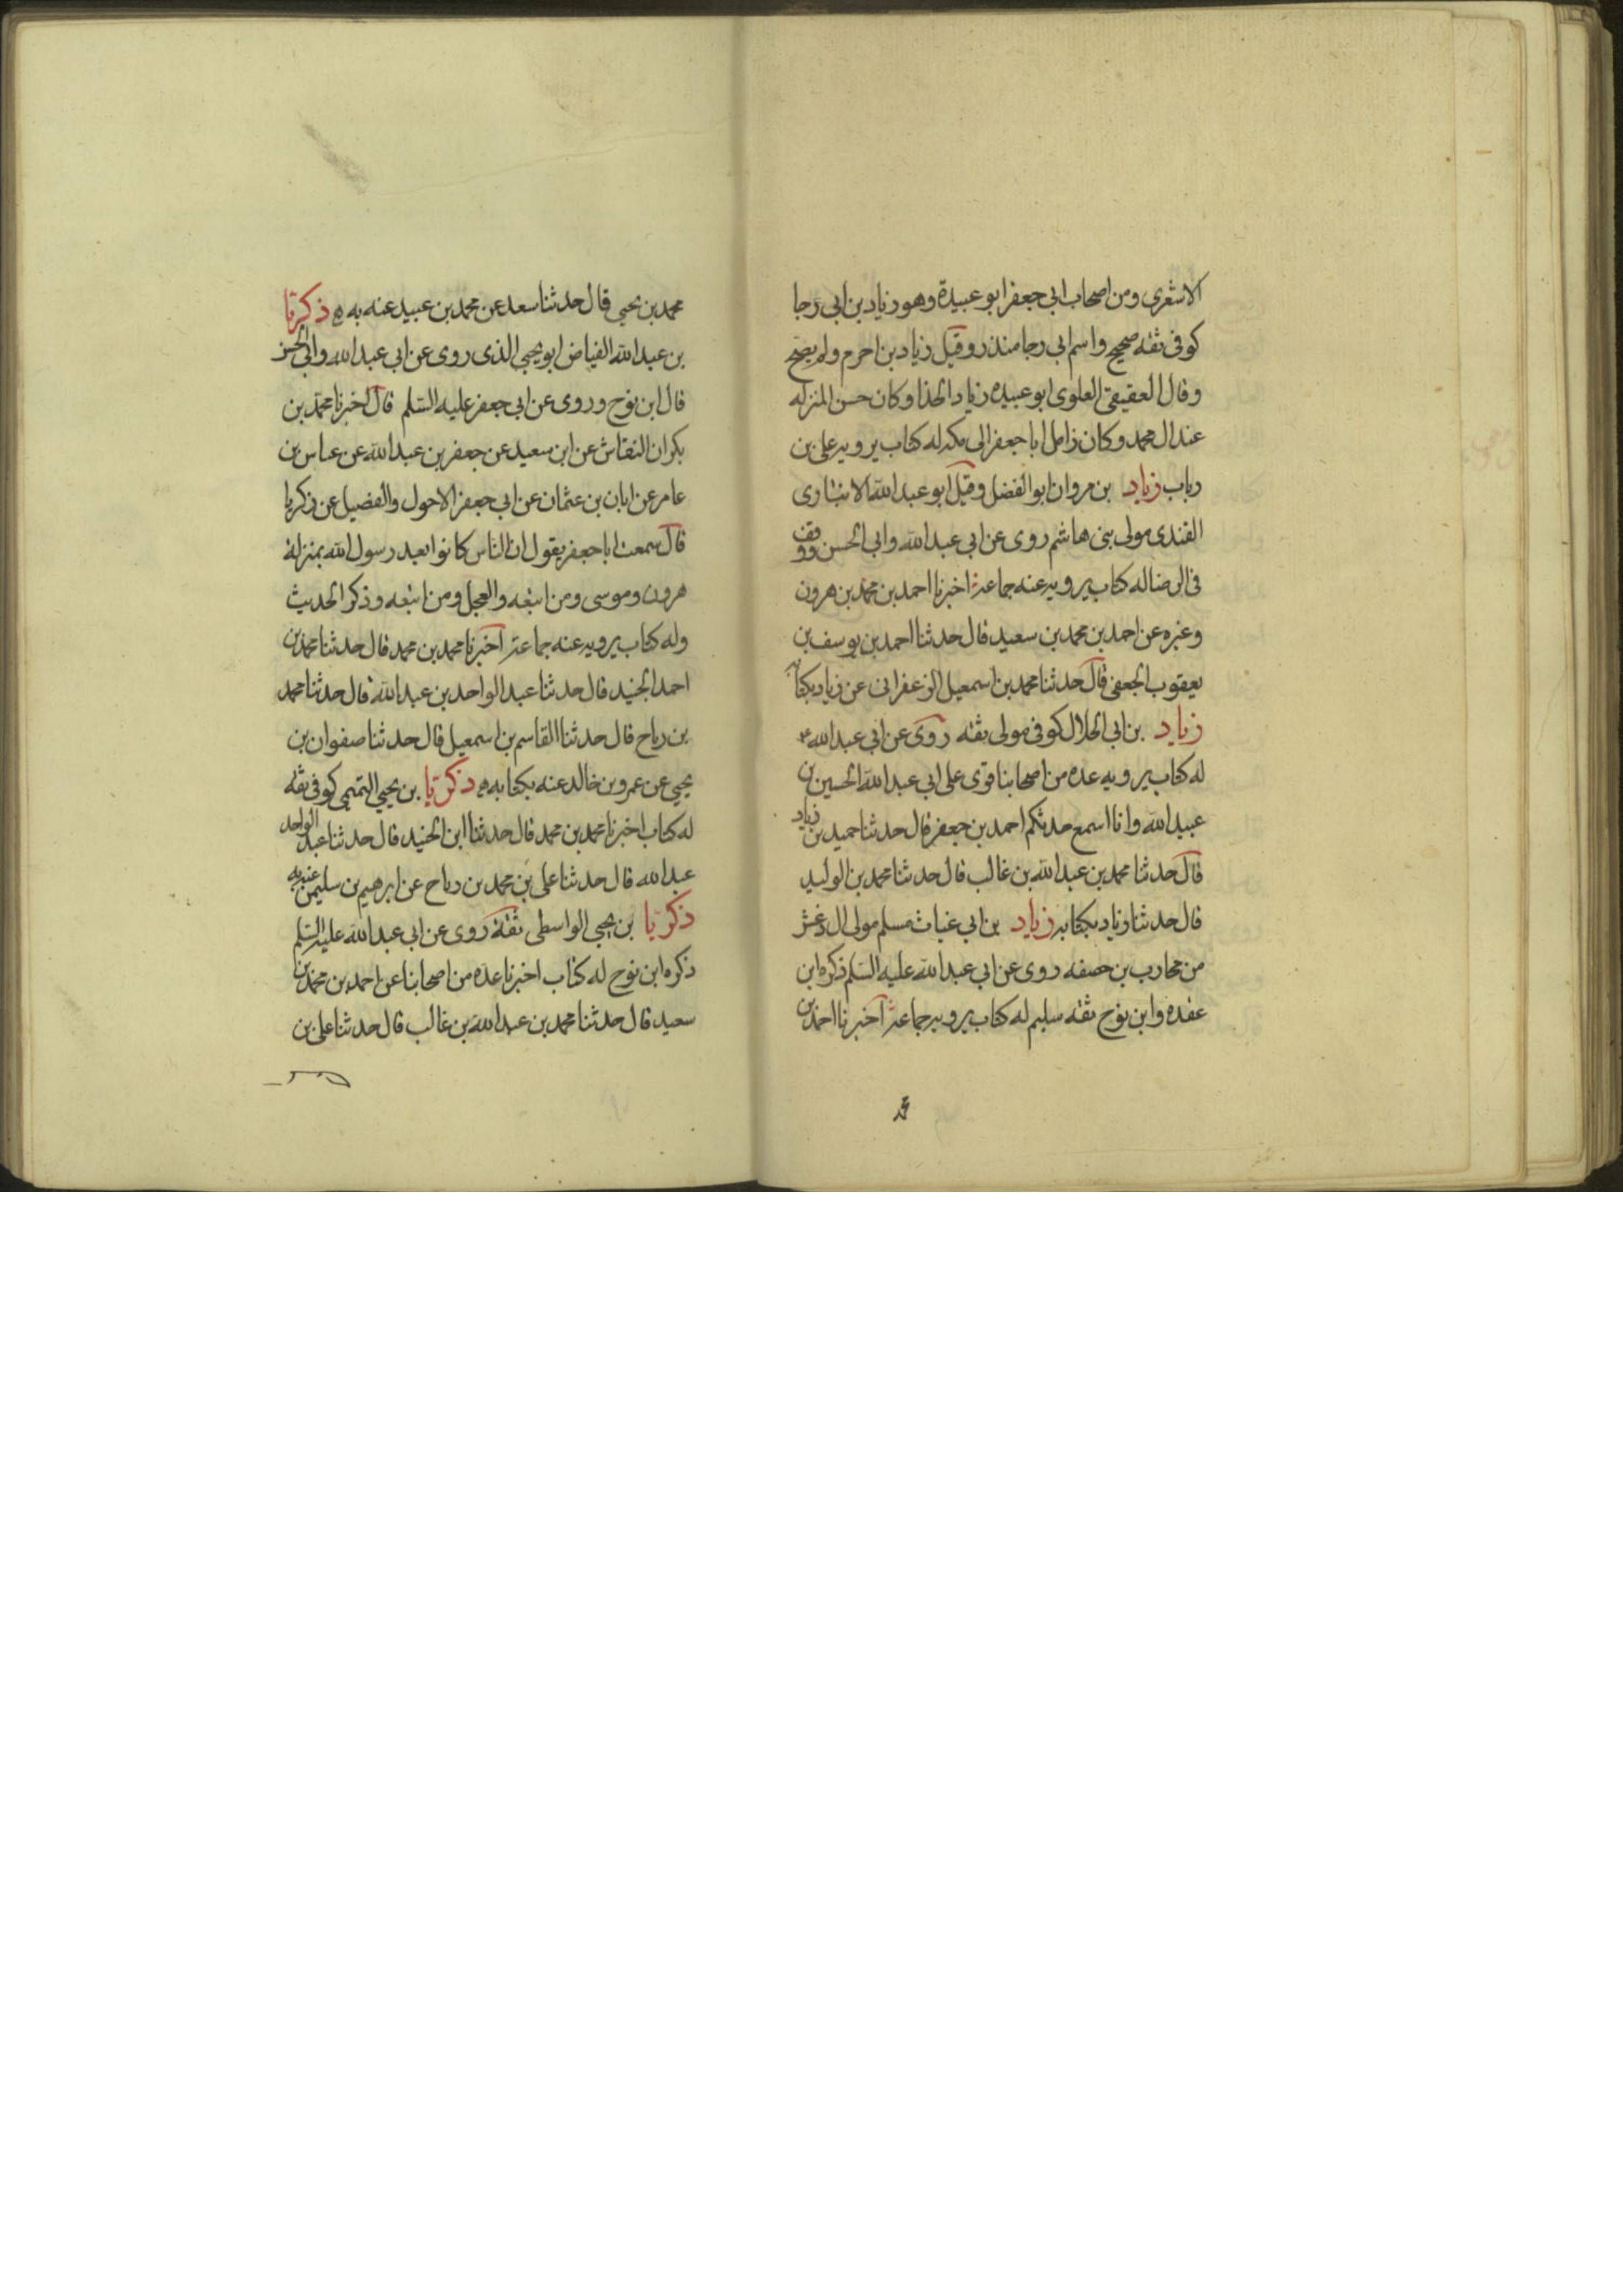 الاشعری ومن اصحاب ابی جعفر ابو عبیدة وهو زیاد بن ابی رجا
کوفی ثقه صحیح واسم ابی رجا منذر وقیل زیاد بن احرم ولم یصح
وقال العقیقی العلوی ابو عبیده زیاد الحذا وکان حسن المنزله
عند ال محمد وکان زامل ابا جعفر الی مکه له کتاب یرویه علی بن
رباب زیاد بن مروان ابو الفضل وقیل ابو عبد الله الانباری
القندی مولی بنی هاشم روی عن ابی عبد الله وابی الحسن ووقف
فی الرضا له کتاب یرویه عنه جماعة اخبرنا احمد بن محمد بن هرون
وغیره عن احمد بن محمد بن سعید قال حدثنا احمد بن یوسف بن
یعقوب الجعفی قال حدثنا محمد بن اسمعیل الزعفرانی عن زیاد بکتابه
زیاد بن ابی الحلال کوفی مولی ثقه روی عن ابی عبد الله ع
له کتاب یرویه عده من اصحابنا قری علی ابی عبد الله الحسین بن
عبید الله وانا اسمع حدثکم احمد بن جعفر قال حدثنا حمید بن زیاد
قال حدثنا محمد بن عبد الله بن غالب قال حدثنا محمد بن الولید
قال حدثنا زیاد بکتابه زیاد بن ابی غیاث مسلم مولی ال دغش
من محارب بن حصفه روی عن ابی عبد الله علیه السلم ذکره ابن
عقده وابن نوح ثقه سلیم له کتاب یرویه جماعة اخبرنا احمد بن
محمد بن یحیی قال حدثنا سعد عن محمد بن عبید عنه به ه ذکریا
بن عبد الله الفیاض ابو یحیی الذی روی عن ابی عبد الله وابی الحسن
قال ابن نوح وروی عن ابی جعفر علیه السلم قال اخبرنا محمد بن
بکران النقاش عن ابن سعید عن جعفر بن عبد الله عن عباس بن
عامر عن ابان بن عثمان عن ابی جعفر الاحول والفضیل عن ذکریا
قال سمعت ابا جعفر یقول ان الناس کانوا بعد رسول الله بمنزلة
هرون وموسی ومن اتبعه والعجل ومن اتبعه وذکر الحدیث
وله کتاب یرویه عنه جماعة اخبرنا محمد بن محمد قال حدثنا محمد بن
احمد الجنید قال حدثنا عبد الواحد بن عبد الله قال حدثنا محمد
بن رباح قال حدثنا القاسم بن اسمعیل قال حدثنا صفوان بن
یحیی عن عمرو بن خالد عنه بکتابه ه ذکریا بن یحیی التمیمی کوفی ثقه
له کتاب اخبرنا محمد بن محمد قال حدثنا ابن الجنید قال حدثنا عبد الواحد
عبد الله قال حدثنا علی بن محمد بن رباح عن ابرهیم بن سلیمن عنه به
ذکریا بن یحیی الواسطی ثقة روی عن ابی عبد الله علیه السلم
ذکره ابن نوح له کتاب اخبرنا عده من اصحابنا عن احمد بن محمد بن
سعید قال حدثنا محمد بن عبد الله بن غالب قال حدثنا علی بن